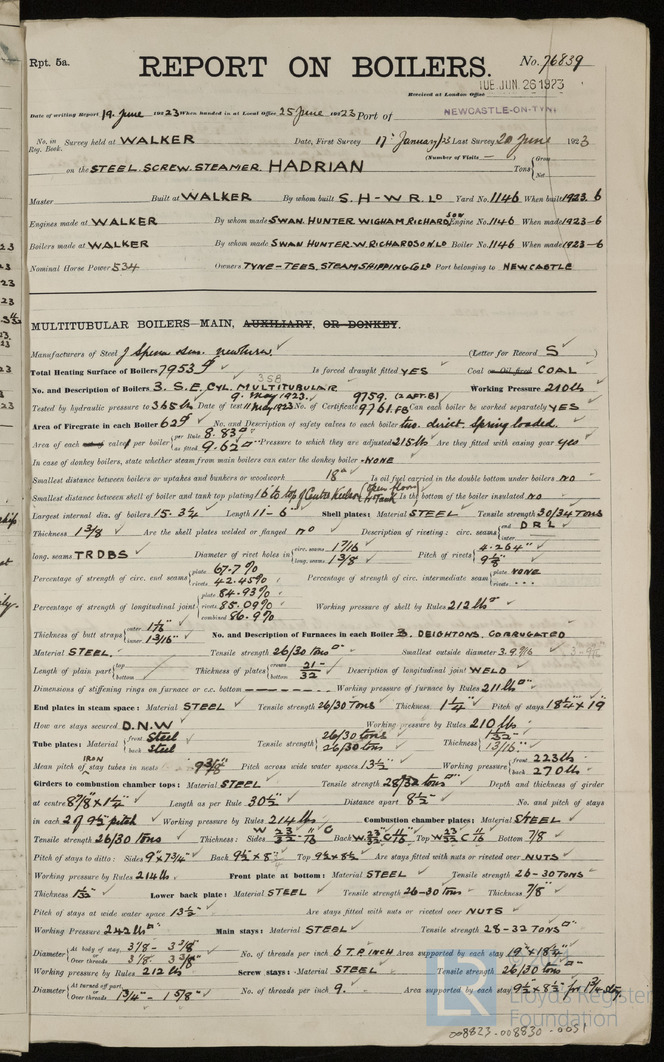 Rpt. 5a.
REPORT ON BOILERS.
No. 76839
Received at London Office TUE. JUN. 26 1923
Date of writing Report 19. June 1923 When handed in at Local Office 25 June 1923 Port of NEWCASTLE-ON-TYNE
No. in Reg. Book. Survey held at WALKER Date, First Survey 17 January /23 Last Survey 20 June 1923
(Number of Visits
on the STEEL. SCREW. STEAMER. HADRIAN Tons { Gross Net
Master Built at WALKER By whom built S. H - W R. LD Yard No. 1146 When built 1923. 6
Engines made at WALKER By whom made SWAN. HUNTER. WIGHAM RICHARDSON Engine No. 1146 When made 1923-6
Boilers made at WALKER By whom made SWAN HUNTER. W. RICHARDSON. LD Boiler No. 1146 When made 1923-6
Nominal Horse Power 534 Owners TYNE-TEES. STEAM SHIPPING Co LD Port belonging to NEWCASTLE
MULTITUBULAR BOILERS MAIN, AUXILIARY, OR DONKEY.
Manufacturers of Steel J Spencer Sons. Newburn. (Letter for Record S )
Total Heating Surface of Boilers 7953 Is forced draught fitted YES Coal or Oil fired COAL
No. and Description of Boilers 3. S. E. CYL. MULTITUBULAR 3SB Working Pressure 210 lb
Tested by hydraulic pressure to 365 lb Date of test 9. May 1923. 11 May 1923 No. of Certificate 9759. (2 AFT. B) 9761. FB Can each boiler be worked separately YES
Area of Firegrate in each Boiler 62 No. and Description of safety valves to each boiler two. direct spring loaded.
Area of each valve per boiler { per Rule 8.83 as fitted 9.62 Pressure to which they are adjusted 215 lb Are they fitted with easing gear yes
In case of donkey boilers, state whether steam from main boilers can enter the donkey boiler NONE
Smallest distance between boilers or uptakes and bunkers or woodwork 18" Is oil fuel carried in the double bottom under boilers NO
Smallest distance between shell of boiler and tank top plating 16" to top of Centre Keelson (Open floors no Tank Is the bottom of the boiler insulated NO
Largest internal dia. of boilers 15-3¼ Length 11-6" Shell plates: Material STEEL Tensile strength 30/34 TONS
Thickness 1 3/8 Are the shell plates welded or flanged NO Description of riveting: circ. seams { end D R L inter.
long. seams TR DBS Diameter of rivet holes in { circ. seams 1 7/16 long. seams 1 3/8 Pitch of rivets { 4.264" 9 1/8
Percentage of strength of circ. end seams { plate 67.7% rivets 42.45% Percentage of strength of circ. intermediate seam { plate NONE rivets
Percentage of strength of longitudinal joint { plate 84.93% rivets 85.09% combined 86.9% Working pressure of shell by Rules 212 lb
Thickness of butt straps { outer 1 1/16 inner 1 3/16" No. and Description of Furnaces in each Boiler 3. DEIGHTONS. CORRUGATED
Material STEEL. Tensile strength 26/30 tons Smallest outside diameter 3.9 9/16
Length of plain part { top bottom Thickness of plates { crown bottom 21/32 Description of longitudinal joint WELD
Dimensions of stiffening rings on furnace or c.c. bottom Working pressure of furnace by Rules 211 lb
End plates in steam space: Material STEEL Tensile strength 26/30 TONS Thickness 1¼" Pitch of stays 18¼" x 19
How are stays secured D. N. W Working pressure by Rules 210 lbs
Tube plates: Material { front Steel back Steel Tensile strength { 26/30 tons 26/30 tons Thickness { 1 1/32" 13/16"
Mean pitch of IRON stay tubes in nests 9 3/8" Pitch across wide water spaces 13½ Working pressure { front 223 lb back 270 lb
Girders to combustion chamber tops: Material STEEL Tensile strength 28/32 tons Depth and thickness of girder
at centre 8 7/8" x 1¼" Length as per Rule 30½" Distance apart 8½" No. and pitch of stays
in each 2 of 9½ pitch Working pressure by Rules 214 lbs Combustion chamber plates: Material STEEL
Tensile strength 26/30 tons Thickness: Sides W 23/32 C 11/16 Back W 23/32 C 11/16 Top W 23/32 C 11/16 Bottom 7/8
Pitch of stays to ditto: Sides 9" x 7¾" Back 9½ x 8" Top 9½ x 8½ Are stays fitted with nuts or riveted over NUTS
Working pressure by Rules 214 lb Front plate at bottom: Material STEEL Tensile strength 26-30 TONS
Thickness 1 1/32 Lower back plate: Material STEEL Tensile strength 26-30 tons Thickness 7/8"
Pitch of stays at wide water space 13½" Are stays fitted with nuts or riveted over NUTS
Working Pressure 242 lb Main stays: Material STEEL Tensile strength 28-32 TONS
Diameter { At body of stay, 3 1/8 - 3 3/8" or Over threads 3 1/8 3 3/8" No. of threads per inch 6 T. P. INCH Area supported by each stay 19" x 18¼"
Working pressure by Rules 212 lb Screw stays: Material STEEL Tensile strength 26/30 tons
Diameter { At turned off part, or Over threads 1¾" - 1 5/8" No. of threads per inch 9. Area supported by each stay 9½" x 8½" for 1¾ stay
LR
Lloyd's Register
Foundation
008823-008830-0051